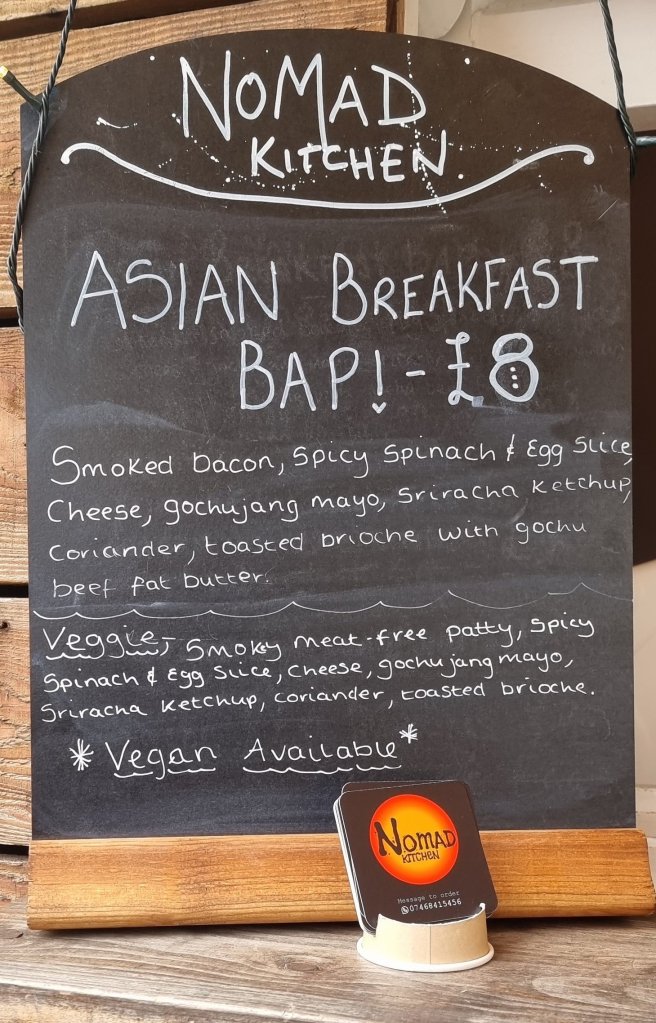 NOMAD
KITCHEN.
ASIAN BREAKFAST
BAP! - £8
Smoked bacon, Spicy Spinach & Egg Slice,
Cheese, gochujang mayo, Sriracha Ketchup,
Coriander, toasted brioche with gochu
beef fat butter.
Veggie, - Smokey meat-free patty, Spicy
Spinach & Egg Slice, Cheese, gochujang mayo,
Sriracha Ketchup, Coriander, toasted brioche.
* Vegan Available *
NOMAD
KITCHEN
Message to order
07468415456